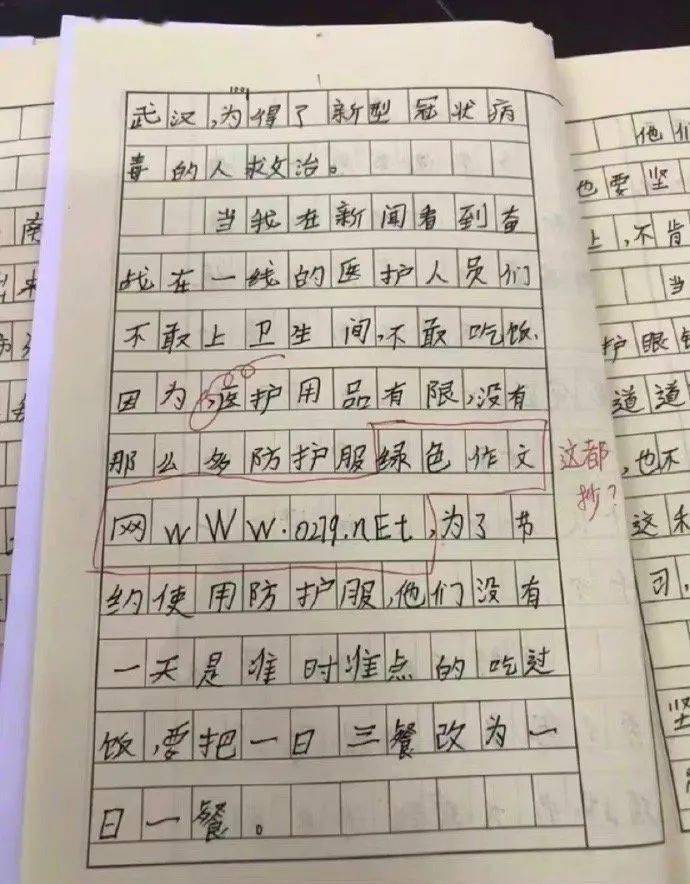 武汉,为得了新型冠状病
毒的人求治。
当我在新闻看到奋
战在一线的医护人员们
不敢上卫生间,不敢吃饭.
因为,医护用品有限,没有
那么多防护服绿色作文
网wWw.0279.nEt,为了节
约使用防护服,他们没有
一天是准时准点的吃过
饭,要把一日三餐改为一
日一餐。
这都
抄?
他们
也要坚
上,不肯
当
护眼镜
道道
,也不
这和
习,
坚
南